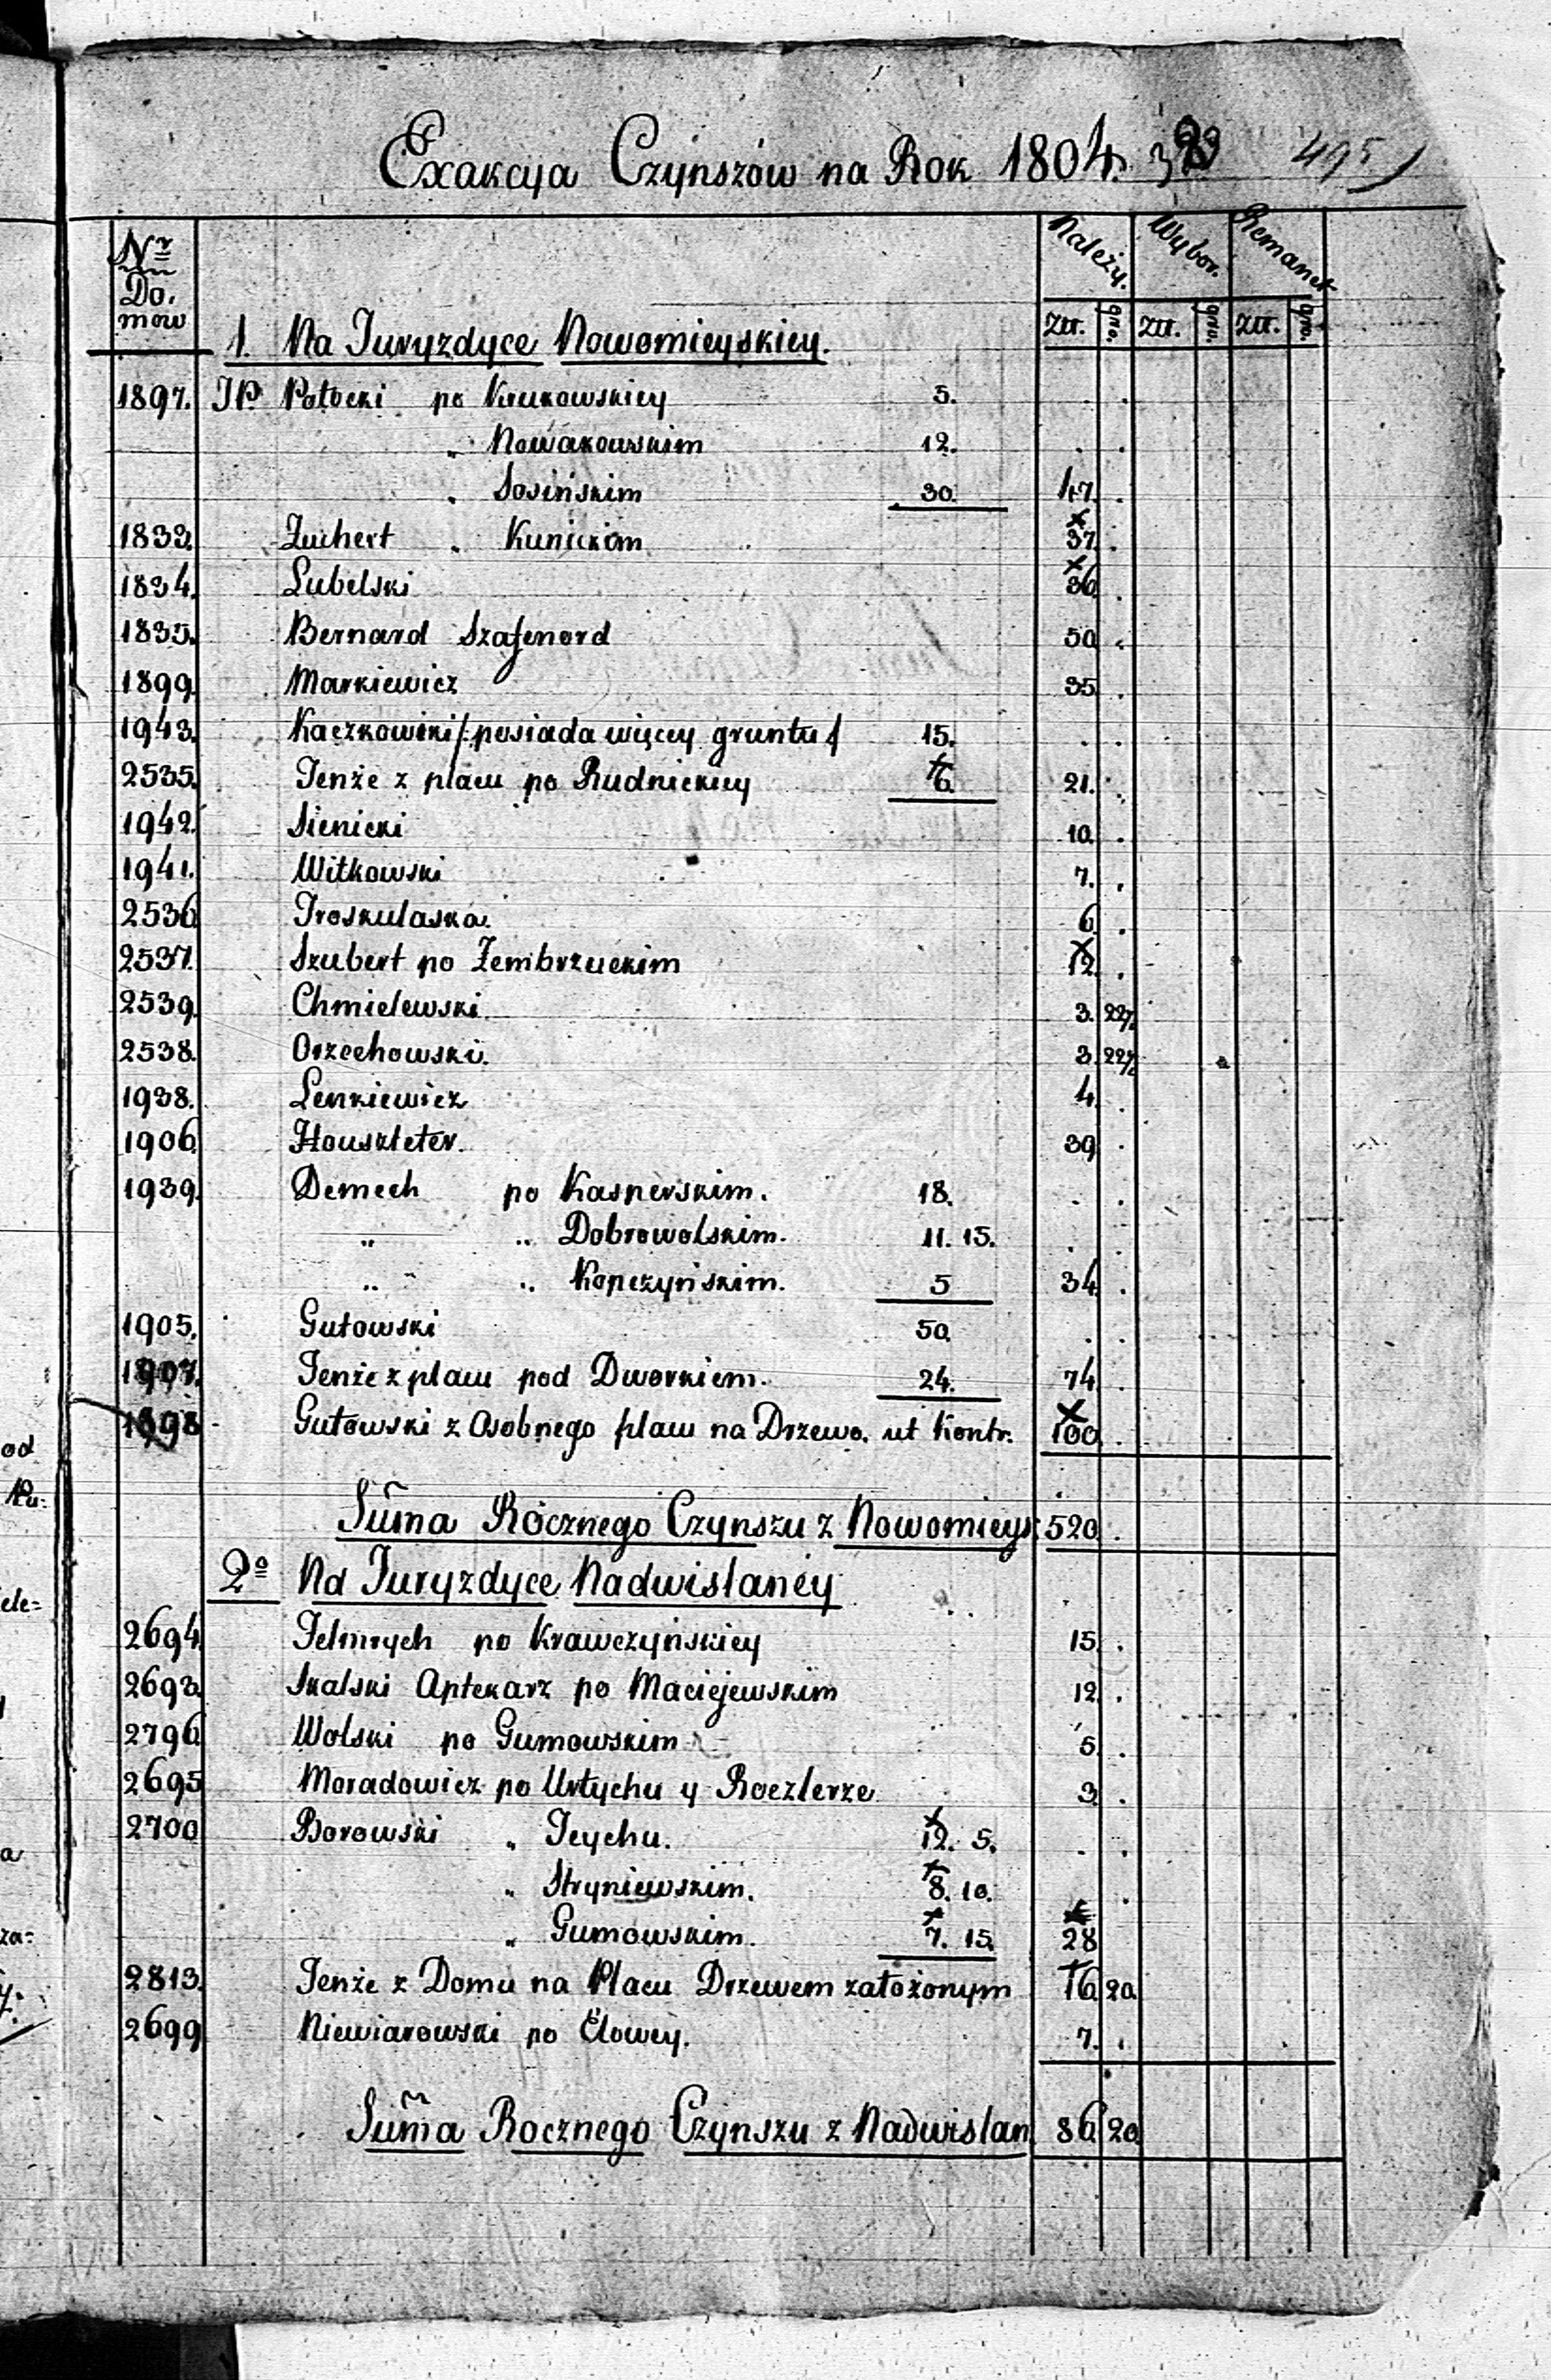 Exakcya Czynszów na Rok 1804. 495
Należy. Wybor. Remanet
Nr
Do.
mów
Złł. gro. Złł. gro. Złł. gro.
1. Na Juryzdyce Nowomieyskiey.
1897. JP. Potocki po Krukowskiey 5.
„ Nowakowskim 12.
„ Sosińskim 30. 47.
1833. Zuchert „ Kunickim 37.
1834. Lubelski 36
1835. Bernard Szafenord 50
1899. Markiewicz 35
1943. Kaczkowski /: posiada więcey gruntu / 15.
2535. Tenże z placu po Rudnickiey 6. 21.
1942. Sienicki 10.
1941. Witkowski 7.
2536 Troskulaska. 6
2537. Szubert po Zembrzuckim 12.
2539. Chmielewski 3. 22½
2538. Orzechowski. 3. 22½
1938. Lenkiewicz 4
1906. Houszleter. 39
1939. Demech po Kasperskim. 18.
„ „ Dobrowolskim. 11. 15.
„ „ Kopczyńskim. 5 34
1905. Gutowski 50
1907. Tenże z placu pod Dworkiem. 24. 74
1898 Gutowski z osobnego placu na Drzewo. ut Kontr. 100
Suma Rocznego Czynszu z Nowomieys 520
2o Na Juryzdyce Nadwislaney
2694 po Krawczyńskiey 15
2693 Skalski Aptekarz po Maciejewskim 12
2796 Wolski po Gumowskim 5
2695 Moradowicz po Urtychu y Roezlerze 3
2700 Borowski „ Jeychu. 12. 5.
„ Stryniewskim. 8. 10.
„ Gumowskim. 7. 15 28
2813. Tenże z Domu na Placu Drzewem założonym 16 20
2699 Niewiarowski po Elowey. 7.
Suma Rocznego Czynszu z Nadwislan 86 20